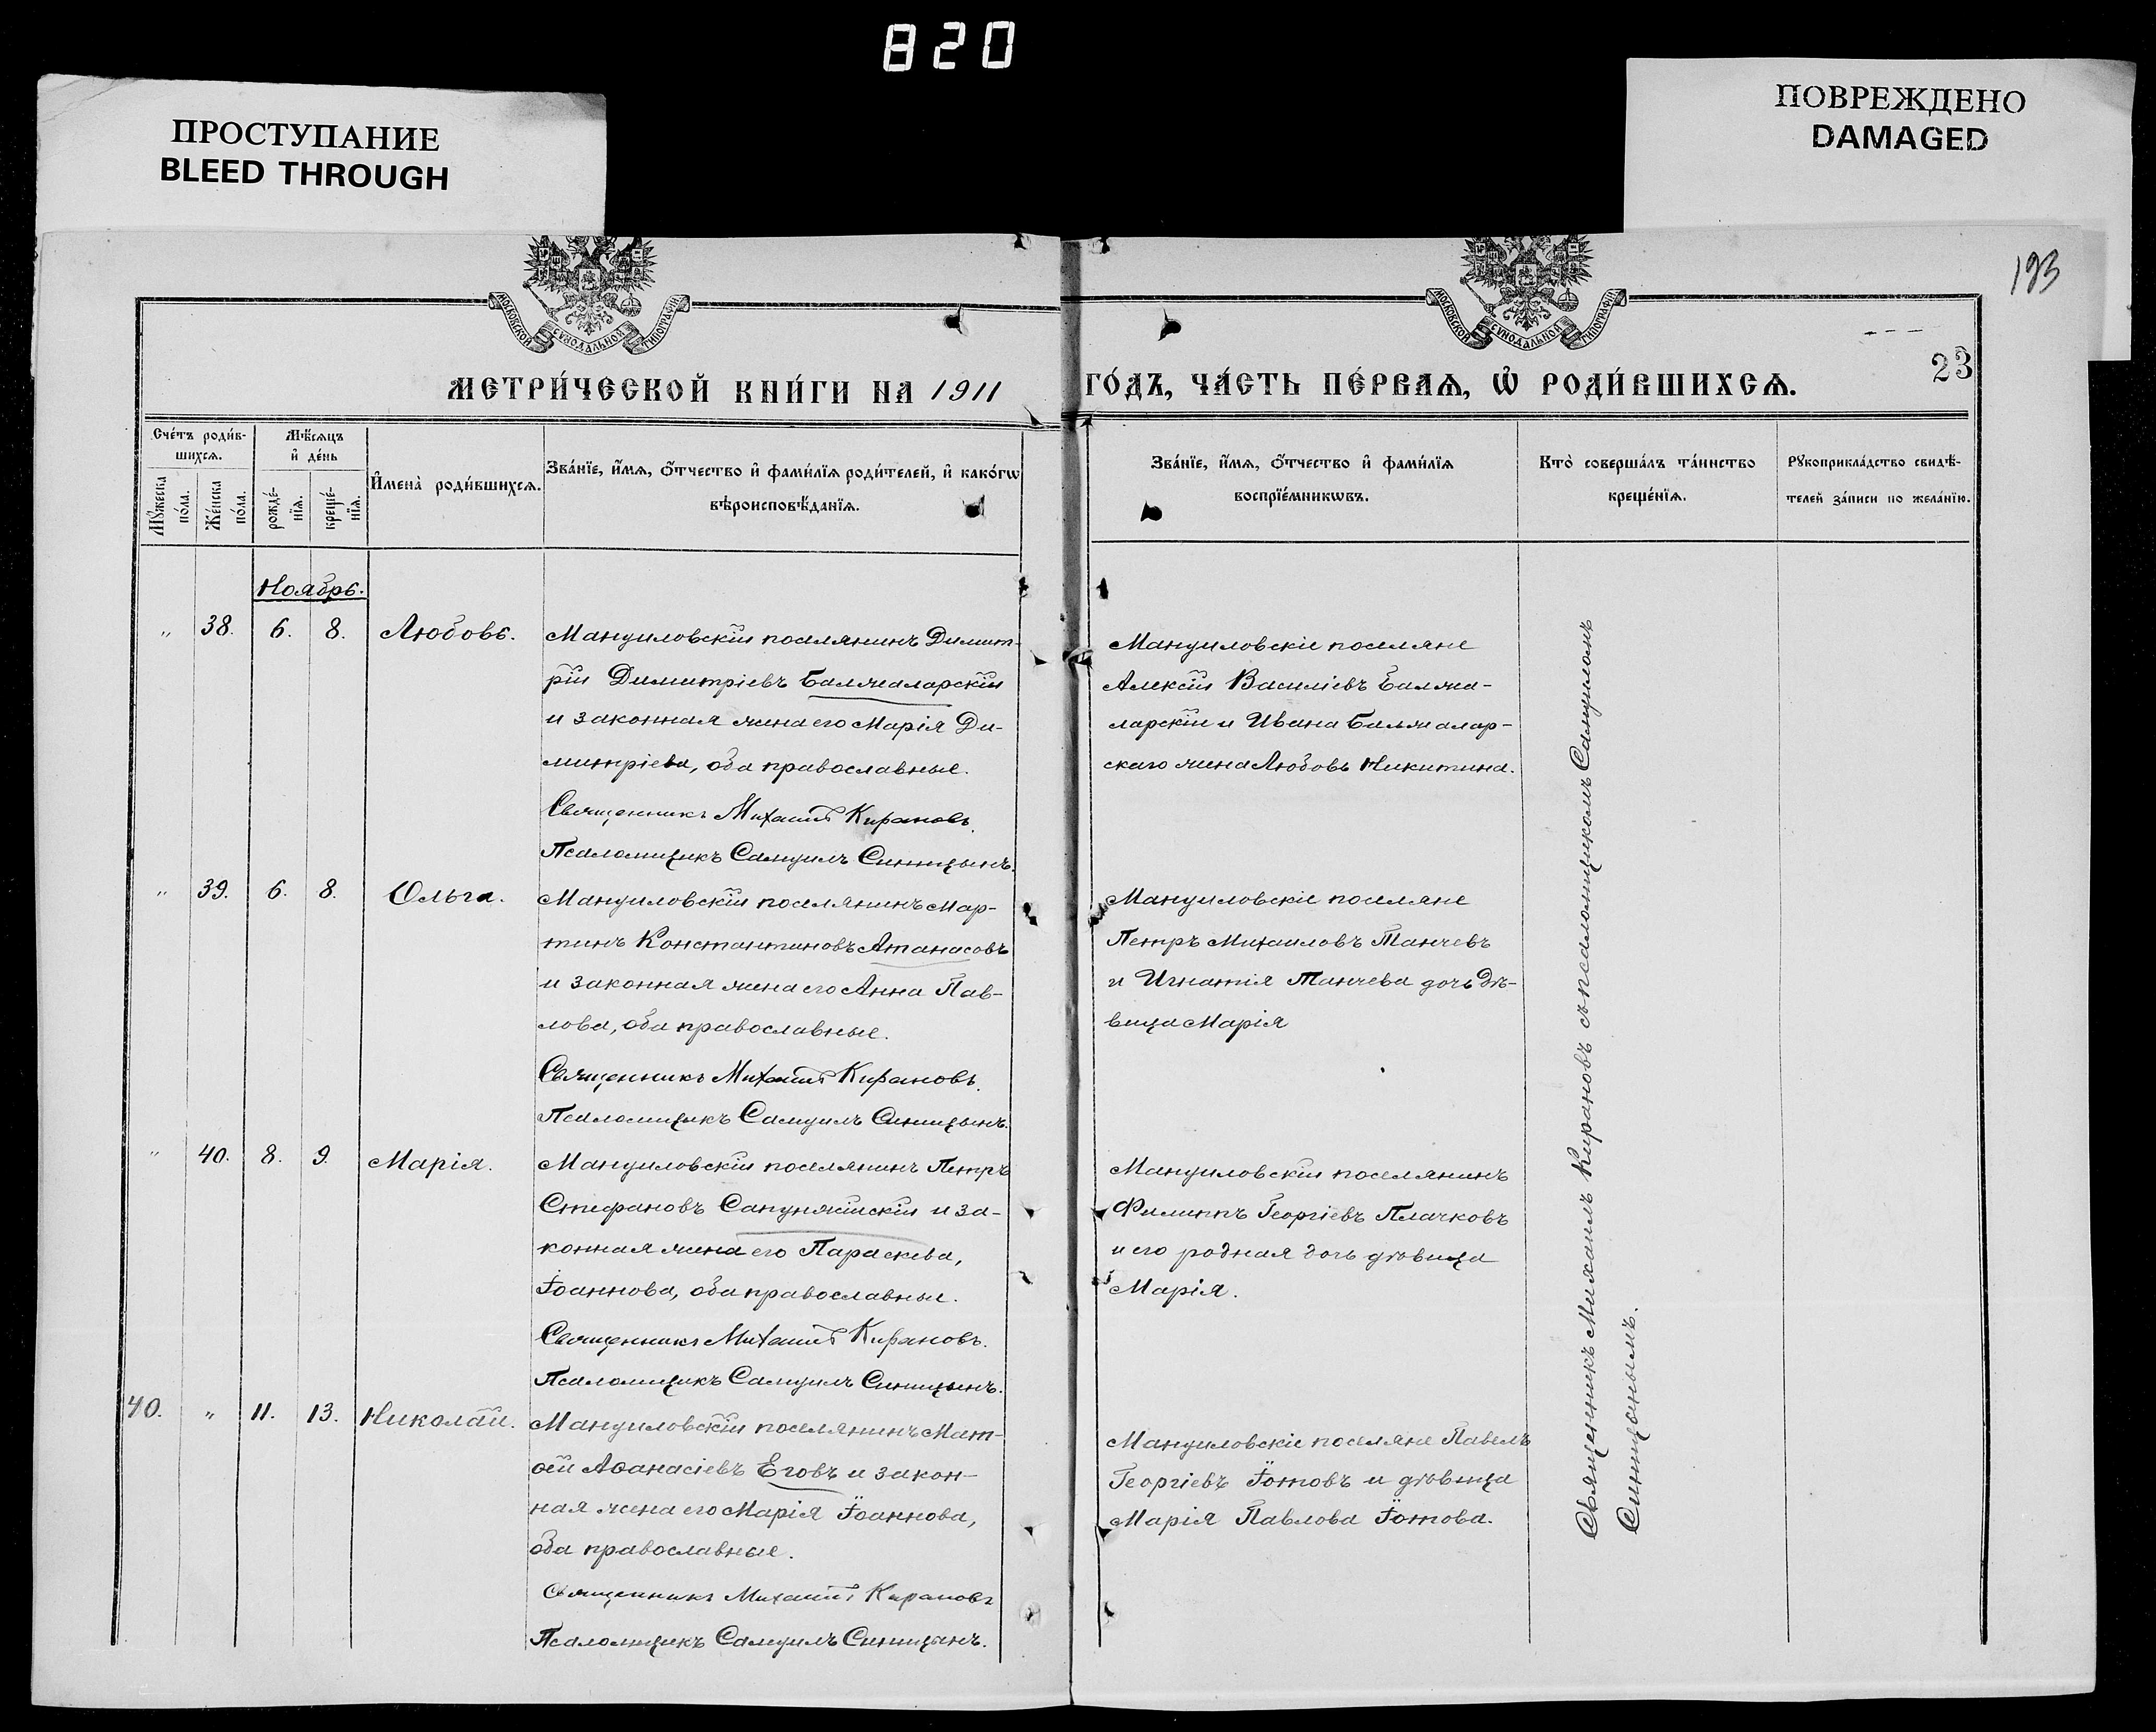 820
ПРОСТУПАНИЕ
BLEED THROUGH
ПОВРЕЖДЕНО
DAMAGED
193
МОСКОВСКОЙ СѴНОДАЛЬНОЙ ТИПОГРАФІИ
МОСКОВСКОЙ СѴНОДАЛЬНОЙ ТИПОГРАФІИ
23
МЕТРИ́ЧЕСКОЙ КНИ́ГИ НА 1911 ГО́ДЪ, ЧА́СТЬ ПЕ́РВАѦ, Ѡ҆ РОДИ́ВШИХСѦ.
Сче́тъ роди́в-
шихсѧ.
Мꙋ́жеска
по́ла.
Же́нска
по́ла.
Мѣ́сѧцъ
и҆ де́нь
рожде́-
нїѧ.
креще́-
нїѧ.
И҆мена̀ роди́вшихсѧ.
Зва́нїе, и҆́мѧ, ѻ҆́тчество и҆ фами́лїѧ роди́телей, и҆ како́гѡ
вѣроисповѣ́данїѧ.
Зва́нїе, и҆́мѧ, ѻ҆́тчество и҆ фами́лїѧ
воспрїе́мникѡвъ.
Кто̀ соверша́лъ та́инство
креще́нїѧ.
Рꙋкоприкла́дство свидѣ́-
телей за́писи по жела́нїю.
Ноябрь.
„ 38. 6. 8. Любовь.
Мануиловскій поселянинъ Димит-
рій Димитріевъ Балжаларскій
и законная жена его Марія Ди-
митріева, оба православные.
Священникъ Михаилъ Кирановъ.
Псаломщикъ Самуилъ Синицынъ.
Мануиловскіе поселяне
Алексій Василіевъ Балжа-
ларскій и Ивана Балжалар-
скаго жена Любовь Никитина.
„ 39. 6. 8. Ольга.
Мануиловскій поселянинъ Мар-
тинъ Константиновъ Атанасовъ
и законная жена его Анна Пав-
лова, оба православные.
Священникъ Михаилъ Кирановъ.
Псаломщикъ Самуилъ Синицынъ.
Мануиловскіе поселяне
Петръ Михаиловъ Танчевъ
и Игнатія Танчева дочь дѣ-
вица Марія
„ 40. 8. 9. Марія.
Мануиловскій поселянинъ Петръ
Стефановъ Сапунжійскій и за-
конная жена его Параскева,
Іоаннова, оба православные.
Священникъ Михаилъ Кирановъ.
Псаломщикъ Самуилъ Синицынъ.
Мануиловскій поселянинъ
Филиппъ Георгіевъ Плачковъ
и его родная дочь дѣвица
Марія.
40. „ 11. 13. Николай.
Мануиловскій поселянинъ Мат-
ѳей Аѳанасіевъ Еговъ и закон-
ная жена его Марія Іоаннова,
оба православные.
Священникъ Михаилъ Кирановъ
Псаломщикъ Самуилъ Синицынъ.
Мануиловскіе поселяне Павелъ
Георгіевъ Іотовъ и дѣвица
Марія Павлова Іотова.
Священникъ Михаилъ Кирановъ съ псаломщикомъ Самуиломъ
Синицынымъ.